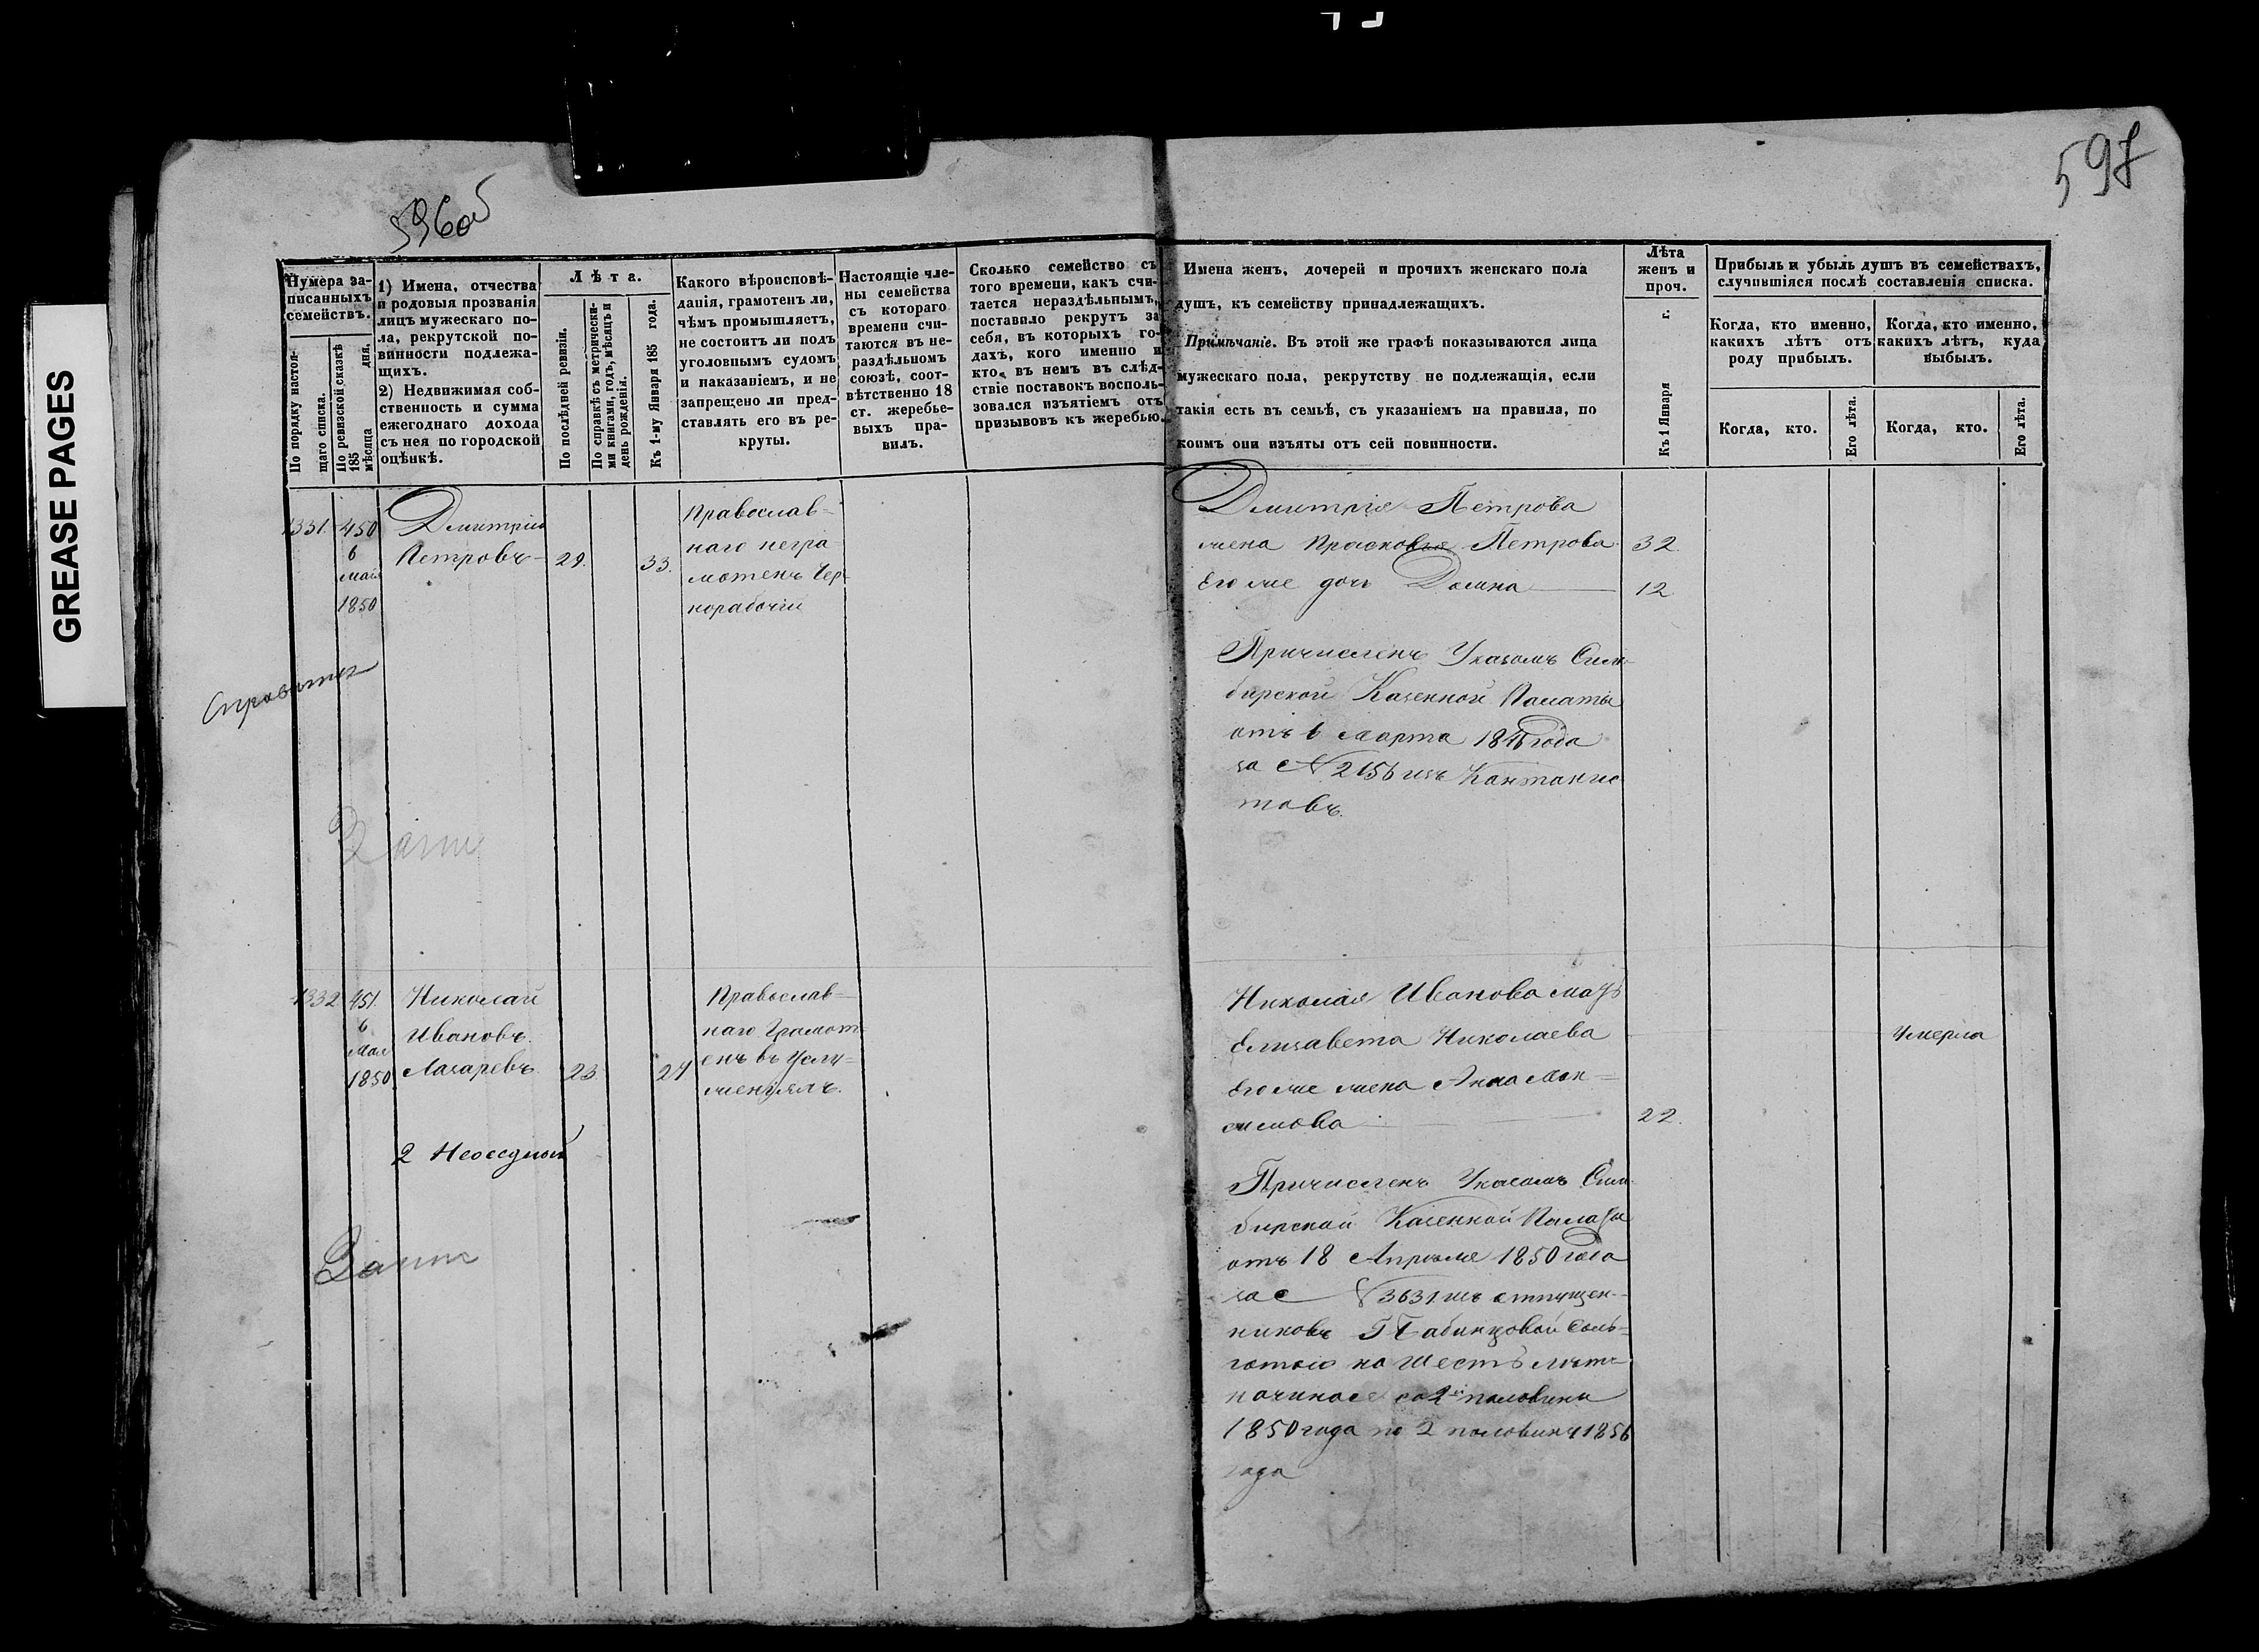 GREASE PAGES
596об
597
Нумера за-
писанныхъ
семействъ.
По порядку настоя-
щаго списка.
По ревизской сказкѣ
185 дня,
мѣсяца
1) Имена, отчества
и родовыя прозванія
лицъ мужескаго по-
ла, рекрутской по-
винности подлежа-
щихъ.
2) Недвижимая соб-
ственность и сумма
ежегоднаго дохода
съ нея по городской
оцѣнкѣ.
Лѣта.
По послѣдней ревизіи.
По справкѣ съ метрически-
ми книгами, годъ, мѣсяцъ и
день рожденія.
Къ 1-му Января 185 года.
Какого вѣроисповѣ-
данія, грамотенъ ли,
чѣмъ промышляетъ,
не состоитъ ли подъ
уголовнымъ судомъ
и наказаніемъ, и не
запрещено ли пред-
ставлять его въ ре-
круты.
Настоящіе чле-
ны семейства
съ котораго
времени счи-
таются въ не-
раздѣльномъ
союзѣ, соот-
вѣтственно 18
ст. жеребье-
выхъ пра-
вилъ.
Сколько семейство съ
того времени, какъ счи-
тается нераздѣльнымъ,
поставило рекрутъ за
себя, въ которыхъ го-
дахъ, кого именно и
кто въ немъ въ слѣд-
ствіе поставокъ восполь-
зовался изъятіемъ отъ
призывовъ къ жеребью.
Имена женъ, дочерей и прочихъ женскаго пола
душъ, къ семейству принадлежащихъ.
Примѣчаніе. Въ этой же графѣ показываются лица
мужескаго пола, рекрутству не подлежащія, если
такія есть въ семьѣ, съ указаніемъ на правила, по
коимъ они изъяты отъ сей повинности.
Лѣта
женъ и
проч.
Къ 1 Января г.
Прибыль и убыль душъ въ семействахъ,
случившіяся послѣ составленія списка.
Когда, кто именно,
какихъ лѣтъ отъ
роду прибылъ.
Когда, кто именно,
какихъ лѣтъ, куда
выбылъ.
Когда, кто.
Его лѣта.
Когда, кто.
Его лѣта.
1331. 450
6
мая
1850
Дмитрій
Петровъ 29. 33.
Православ-
наго негра
мотенъ Чер-
норабочій
Дмитрія Петрова
жена Прасковья Петрова 32.
Его же дочь Домна 12
Причисленъ Указомъ Сим-
бирской Казенной Палаты
отъ 6 Марта года
за N 2156 изъ Кантонис-
товъ.
1332 451.
6
мая
1850
Николай
Ивановъ.
Лазаревъ 23. 27
2
Православ-
наго Грамот-
енъ въ Услу-
женіяхъ.
Николая Иванова мать
Елизавета Николаева
Умерла
Его же жена Анна Мак-
симова 22.
Причисленъ Указомъ Сим-
бирской Казенной Палаты
отъ 18 Апреля 1850 года
за N 3631 изъ отпущен-
никовъ Г Бабинцовой Соль-
готою на шесть летъ
начиная со 2й половины
1850 года по 2 половину 1856
года